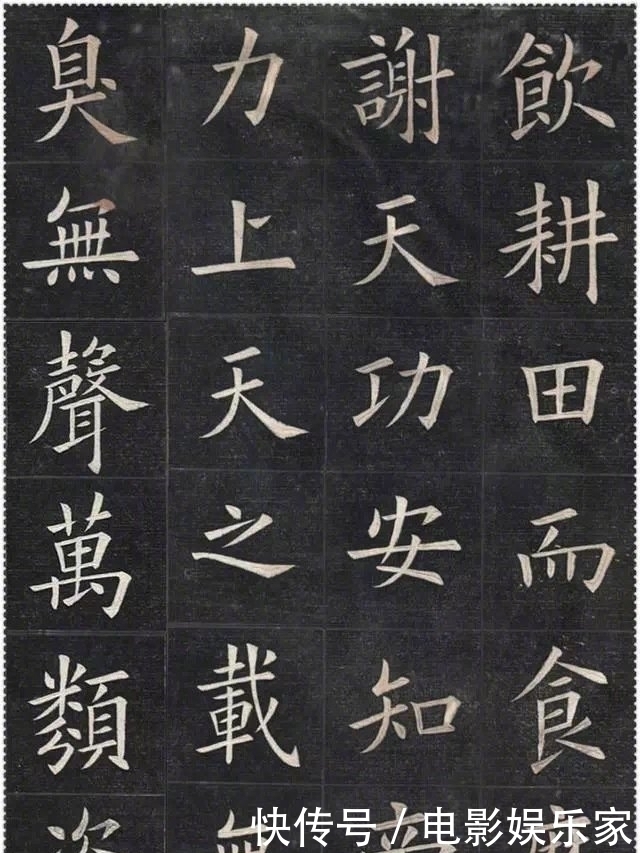 飲耕田而食
謝天功安知
力上天之載
臭無聲萬類
快传号/电影娱乐家